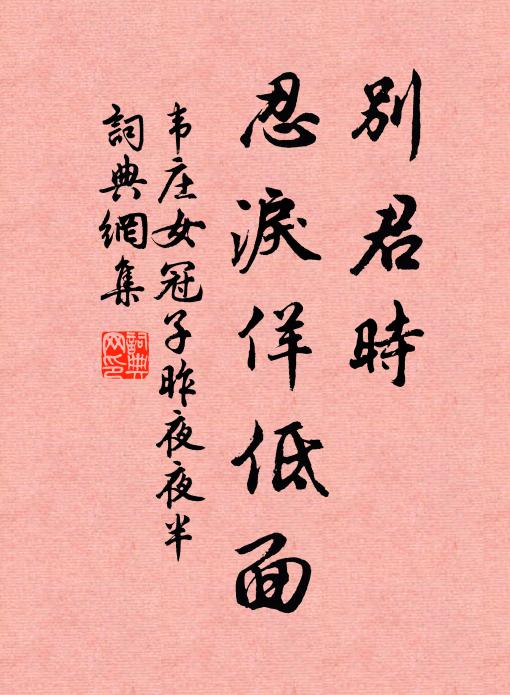 別君時
忍淚佯低面
韦庄女冠子昨夜夜半
詞典網集
詞典網印